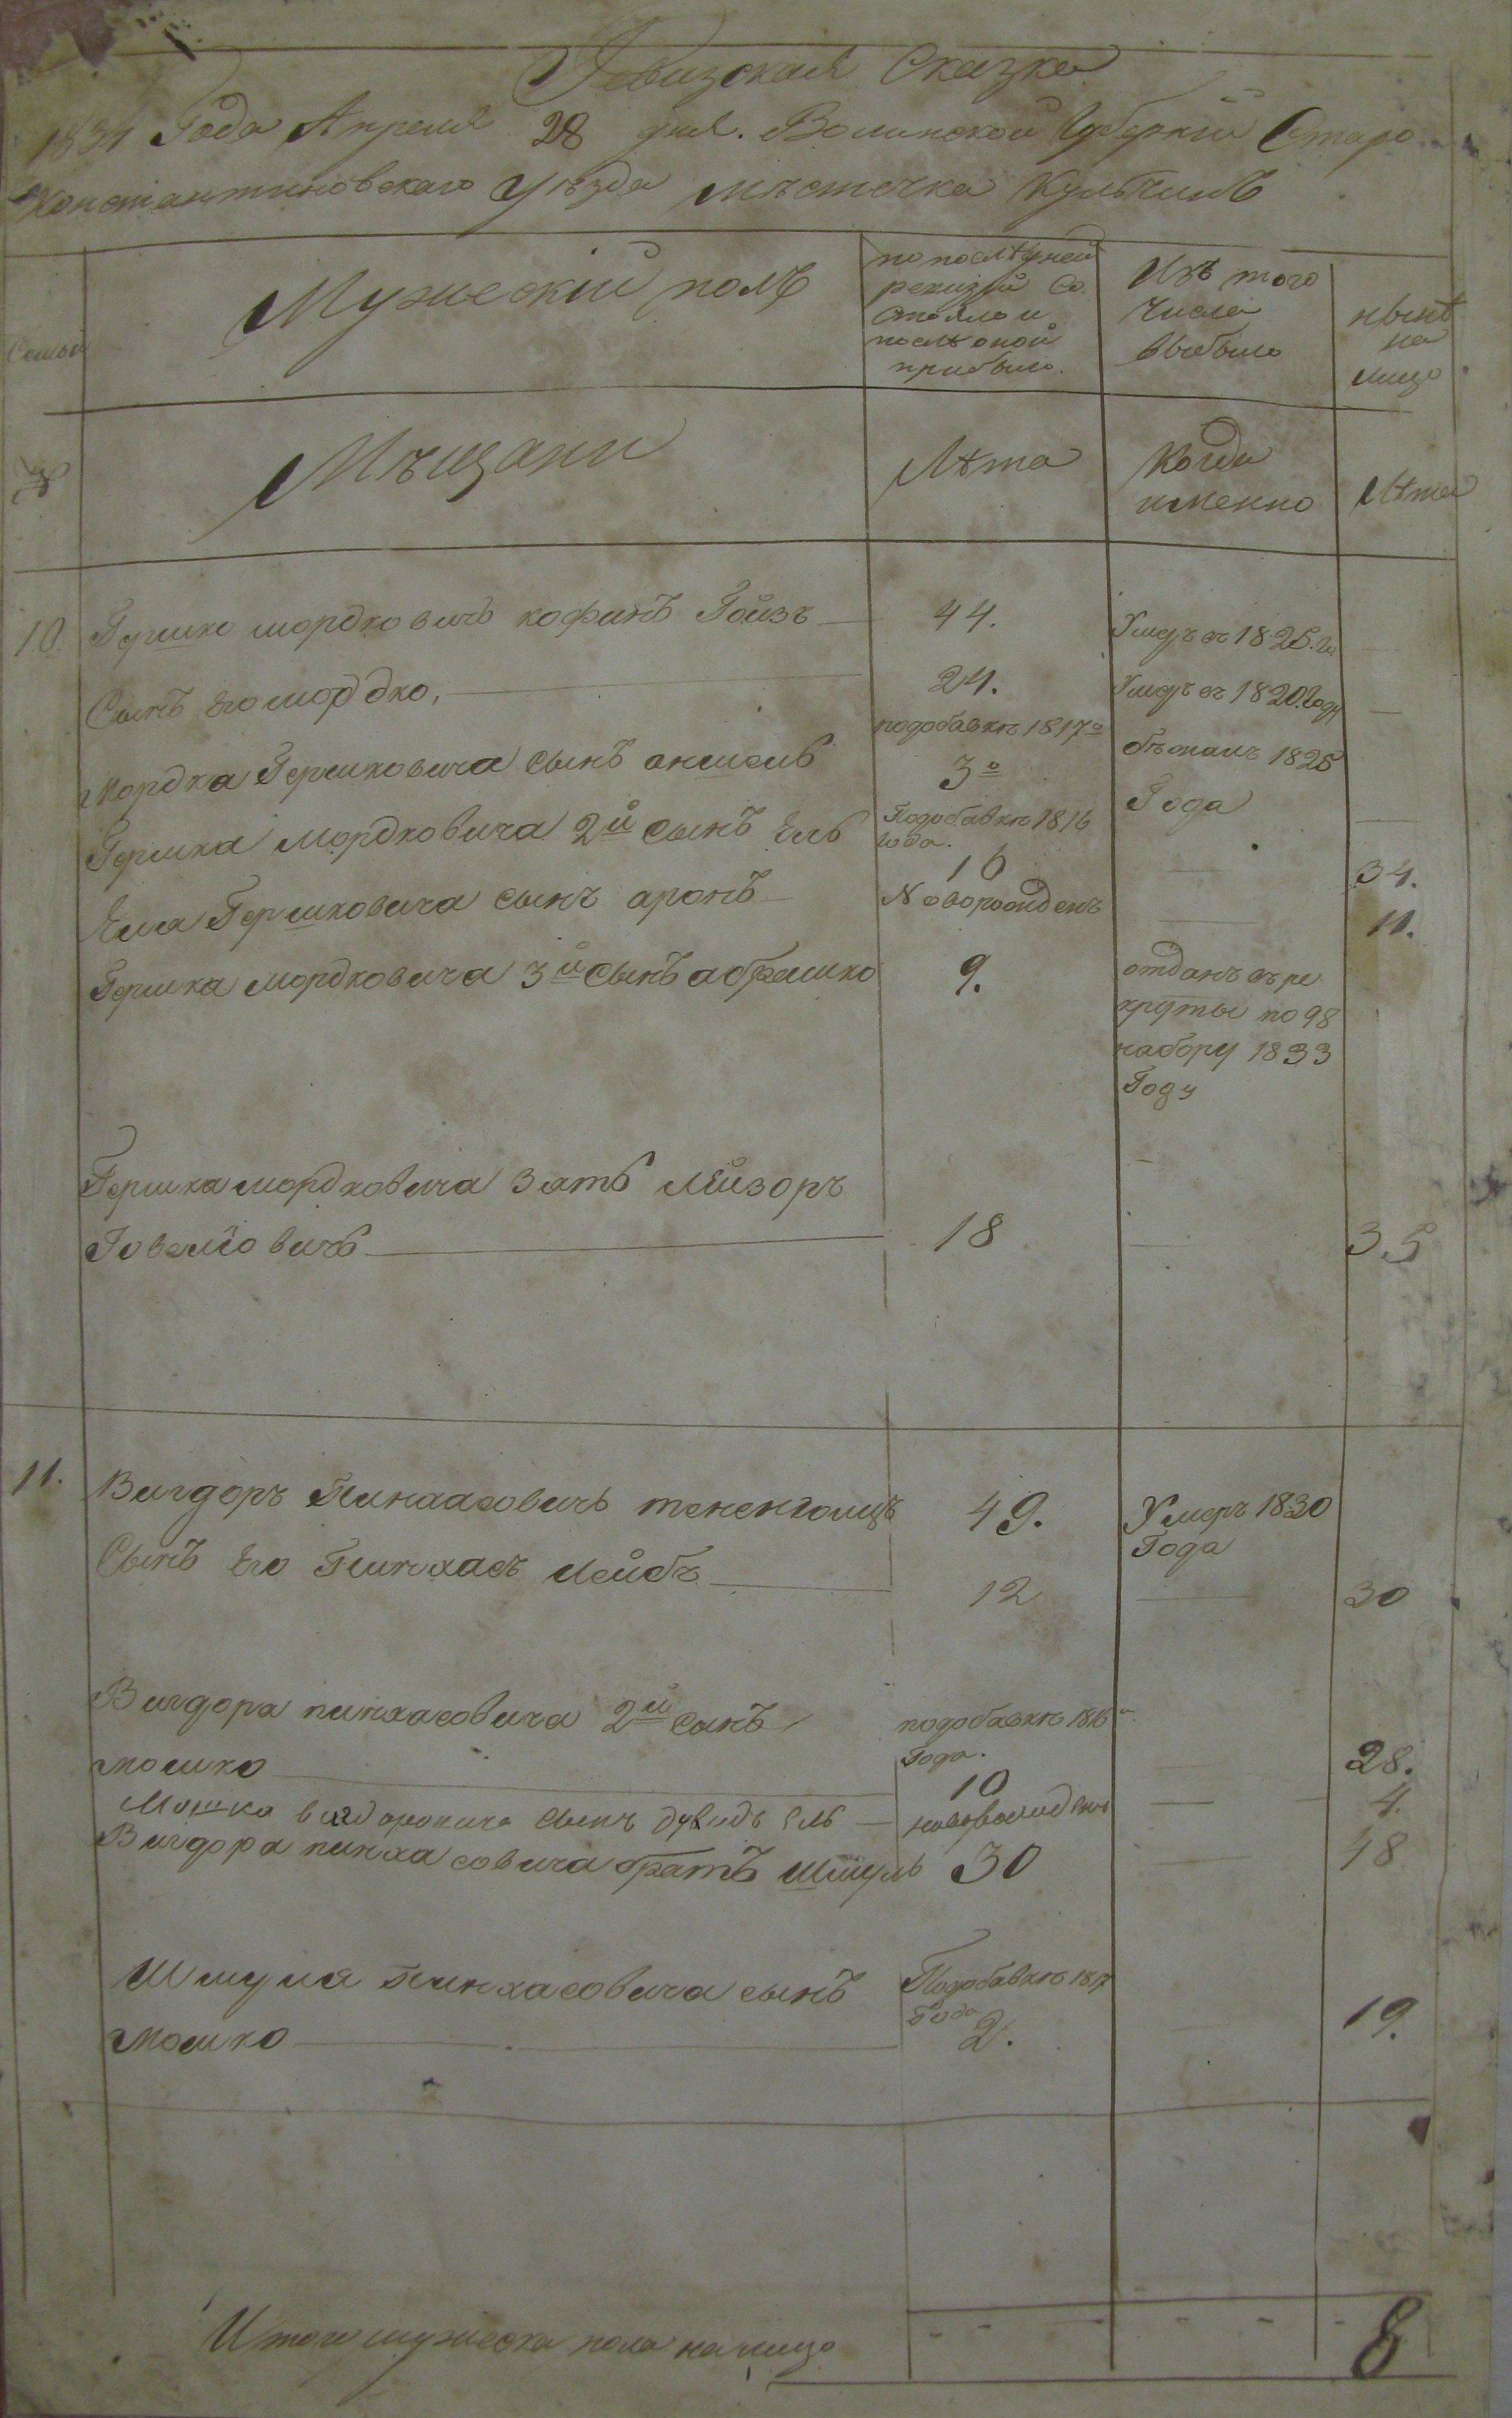 Ревизская Сказка
1834 Года Апреля 28 дня. Волинской Губернїи Старо
Константиновскаго Уезда мъстечка Кульчинъ
Семьи
Мужескїй полъ
по последней
ревизїи Со
стояло и
послѣ оной
прибыло.
Изъ того
числа
выбыло
нынѣ
на
лицо
№
Мъщани
Лѣта
Когда
именно
Лѣта
10. Гершко мордковичъ кофинъ Гойзъ 44. Умеръ въ 1825. Го
Сынъ Его мордко, 24. Умеръ въ 1820. Году
подобавкъ 1817 о
Мордка Гершковича сынъ аншель 3 о бъжалъ 1825
Года
Гершка мордковича 2й сынъ Ель Подобавкъ 1816
года.
16 34.
Еля Гершковича сынъ аронъ Новорожденъ 11.
Гершка мордковича 3й Сынъ абрашко 9. отданъ въ ре
круты по 98
набору 1833
Году
Гершка мордковича Зять лейзоръ
Говелїовичъ 18 35
11. Вигдоръ Пинхасовичъ тененгольцъ 49. Умеръ 1830
Года
Сынъ Его Пинхасъ Лейбъ 12 30
Вигдора пинхасовича 2й сынъ подобавкъ 1816
Года.
мошко 10 28.
Мошка вигдоровича сынъ дувидъ Ель новорожденъ 4.
Вигдора пинхасовича братъ Шмуль 30 48
Шмуля Пинхасовича сынъ Подобавкъ 1817
Года
мошко 2. 19.
Итого мужеска пола налицо 8